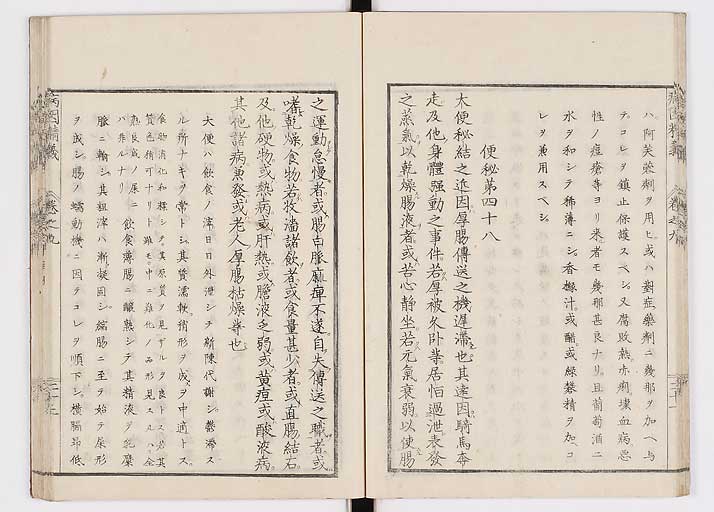 ハ阿芙蓉劑ヲ用ヒ或ハ對症藥劑ニ幾那ヲ加ヘ与
テコレヲ鎮止保護スベシ又腐敗熱赤痢壊血病悪
性ノ痘瘡等ヨリ来者モ幾那甚良ナリ且葡萄酒ニ
水ヲ和シテ稀薄ニシ香橼汁或醋或緑礬精ヲ加コ
レヲ兼用スベシ
便秘第四十八
大便秘結之近因厚腸傳送之機遅滞也其遠因騎馬奔
走及他身體強動之事件若厚被久卧業居怕過泄表發
之蒸氣以乾燥腸液者或苦心静坐若元氣衰弱以使腸
之運動怠慢者或腸白脈麻痺不遂自失傳送之職者或
嗜乾燥食物若收濇諸飲者或食量甚少者或直腸結石
及他硬物或熱病或肝熱或膽液乏弱或黄疸或酸液病
其他諸病兼發或老人厚腸枯燥等也
大便ハ飲食ノ滓日日外泄シテ新陳代謝シ鬱滞ス
ル所ナキヲ常トシ其質濡軟稍形ヲ成ヲ中適トス
食物消化和釋シテ其原質ヲ見ザルヲ良トス若其
質色稍可ナリト雖モ中ニ難化ノ品形見スルハ全
熟良成ノ屎ニ
ハ非ルナリ
飲食薄腸ニ醸熟シテ其精液ヲ乳糜
脈ニ輸シ其粗滓ハ漸凝固シ結腸ニ至テ始テ屎形
ヲ成シ腸ノ蠕動機ニ因テコレヲ順下シ横腸昂低
病因精義
巻之九